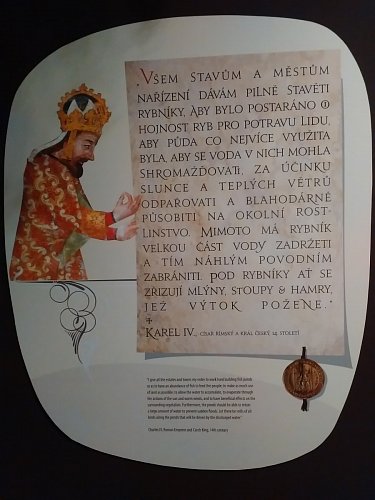 „VŠEM STAVŮM A MĚSTŮM
NAŘÍZENÍ DÁVÁM PILNĚ STAVĚTI
RYBNÍKY, ABY BYLO POSTARÁNO O
HOJNOST RYB PRO POTRAVU LIDU,
ABY PŮDA CO NEJVÍCE VYUŽITA
BYLA, ABY SE VODA V NICH MOHLA
SHROMAŽĎOVATI, ZA ÚČINKU
SLUNCE A TEPLÝCH VĚTRŮ
ODPAŘOVATI A BLAHODÁRNĚ
PŮSOBITI NA OKOLNÍ ROST-
LINSTVO. MIMOTO MÁ RYBNÍK
VELKOU ČÁST VODY ZADRŽETI
A TÍM NÁHLÝM POVODNÍM
ZABRÁNITI. POD RYBNÍKY AŤ SE
ZŘIZUJÍ MLÝNY, STOUPY & HAMRY,
JEŽ VÝTOK POŽENE.“
KAREL IV., CÍSAŘ ŘÍMSKÝ A KRÁL ČESKÝ 14. STOLETÍ
"I give all the estates and towns my order to work hard building fish ponds
so as to have an abundance of fish to feed the people; to make as much use
of land as possible; to allow the water to accumulate, to evaporate through
the actions of the sun and warm winds, and to have beneficial effects on the
surrounding vegetation. Furthermore, the ponds should be able to retain
a large amount of water to prevent sudden floods. Let there be mills of all
kinds along the ponds that will be driven by the discharged water."
Charles IV, Roman Emperor and Czech King, 14th century